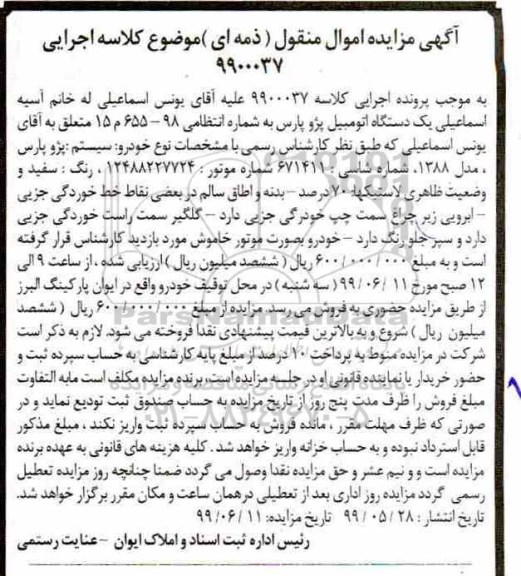 آگهی مزایده اموال منقول ( ذمه ای )موضوع کلاسه اجرایی
۹۹۰۰۰۳۷
به موجب پرونده اجرایی کلاسه ۹۹۰۰۰۳۷ علیه آقای یونس اسماعیلی له خانم آسیه
اسماعیلی یک دستگاه اتومبیل پژو پارس به شماره انتظامی ۹۸ – ۶۵۵ م ۱۵ متعلق به آقای
یونس اسماعیلی که طبق نظر کارشناس رسمی با مشخصات نوع خودرو: سیستم :پژو پارس
، مدل ۱۳۸۸، شماره شاسی : ۶۷۱۴۱۱ شماره موتور : ۱۲۴۸۸۲۲۷۷۲۴ ، رنگ : سفید و
وضعیت ظاهری لاستیکها: ۷۰ درصد – بدنه و اطاق سالم در بعضی نقاط خط خوردگی جزیی
– ابرویی زیر چراغ سمت چپ خودرگی جزیی دارد – گلگیر سمت راست خوردگی جزیی
دارد و سپر جلو رنگ دارد – خودرو بصورت موتور خاموش مورد بازدید کارشناس قرار گرفته
است و به مبلغ ۶۰۰/۰۰۰/۰۰۰ ریال ( ششصد میلیون ریال ) ارزیابی شده ، از ساعت ۹ الی
۱۲ صبح مورخ ۱۱ /۰۶ /۹۹ ( سه شنبه ) در محل توقیف خودرو واقع در ایوان پارکینگ البرز
از طریق مزایده حضوری به فروش می رسد. مزایده از مبلغ ۶۰۰/۰۰۰/۰۰۰ ریال ( ششصد
میلیون ریال ) شروع و به بالاترین قیمت پیشنهادی نقدا فروخته می شود. لازم به ذکر است
شرکت در مزایده منوط به پرداخت ۱۰ درصد از مبلغ پایه کارشناسی به حساب سپرده ثبت و
حضور خریدار یا نماینده قانونی او در جلسه مزایده است. برنده مزایده مکلف است مابه التفاوت
مبلغ فروش را ظرف مدت پنج روز از تاریخ مزایده به حساب صندوق ثبت تودیع نماید و در
صورتی که ظرف مهلت مقرر ، مانده فروش به حساب سپرده ثبت واریز نکند ، مبلغ مذکور
قابل استرداد نبوده و به حساب خزانه واریز خواهد شد . کلیه هزینه های قانونی به عهده برنده
مزایده است و و نیم عشر و حق مزایده نقدا وصول می گردد ضمنا چنانچه روز مزایده تعطیل
رسمی گردد مزایده روز اداری بعد از تعطیلی درهمان ساعت و مکان مقرر برگزار خواهد شد.
تاریخ انتشار : ۲۸ / ۰۵ / ۹۹ تاریخ مزایده: ۱۱ /۰۶ /۹۹
رئیس اداره ثبت اسناد و املاک ایوان –عنایت رستمی